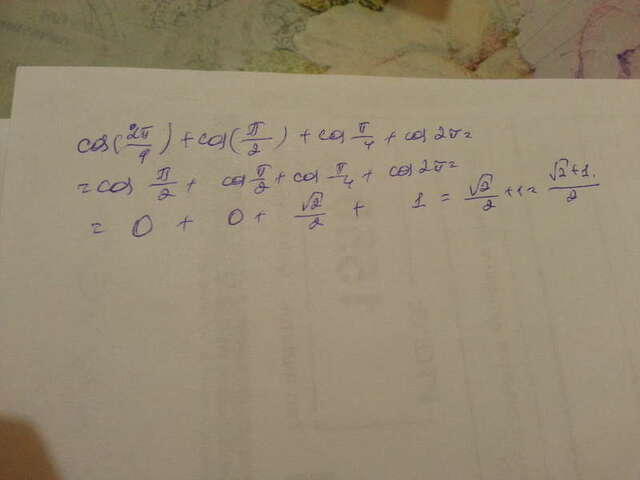 cos(2π/4) + cos(π/2) + cos π/4 + cos 2π =
= cos π/2 + cos π/2 + cos π/4 + cos 2π =
= 0 + 0 + √2/2 + 1 = √2/2 + 1 = √2+1/2